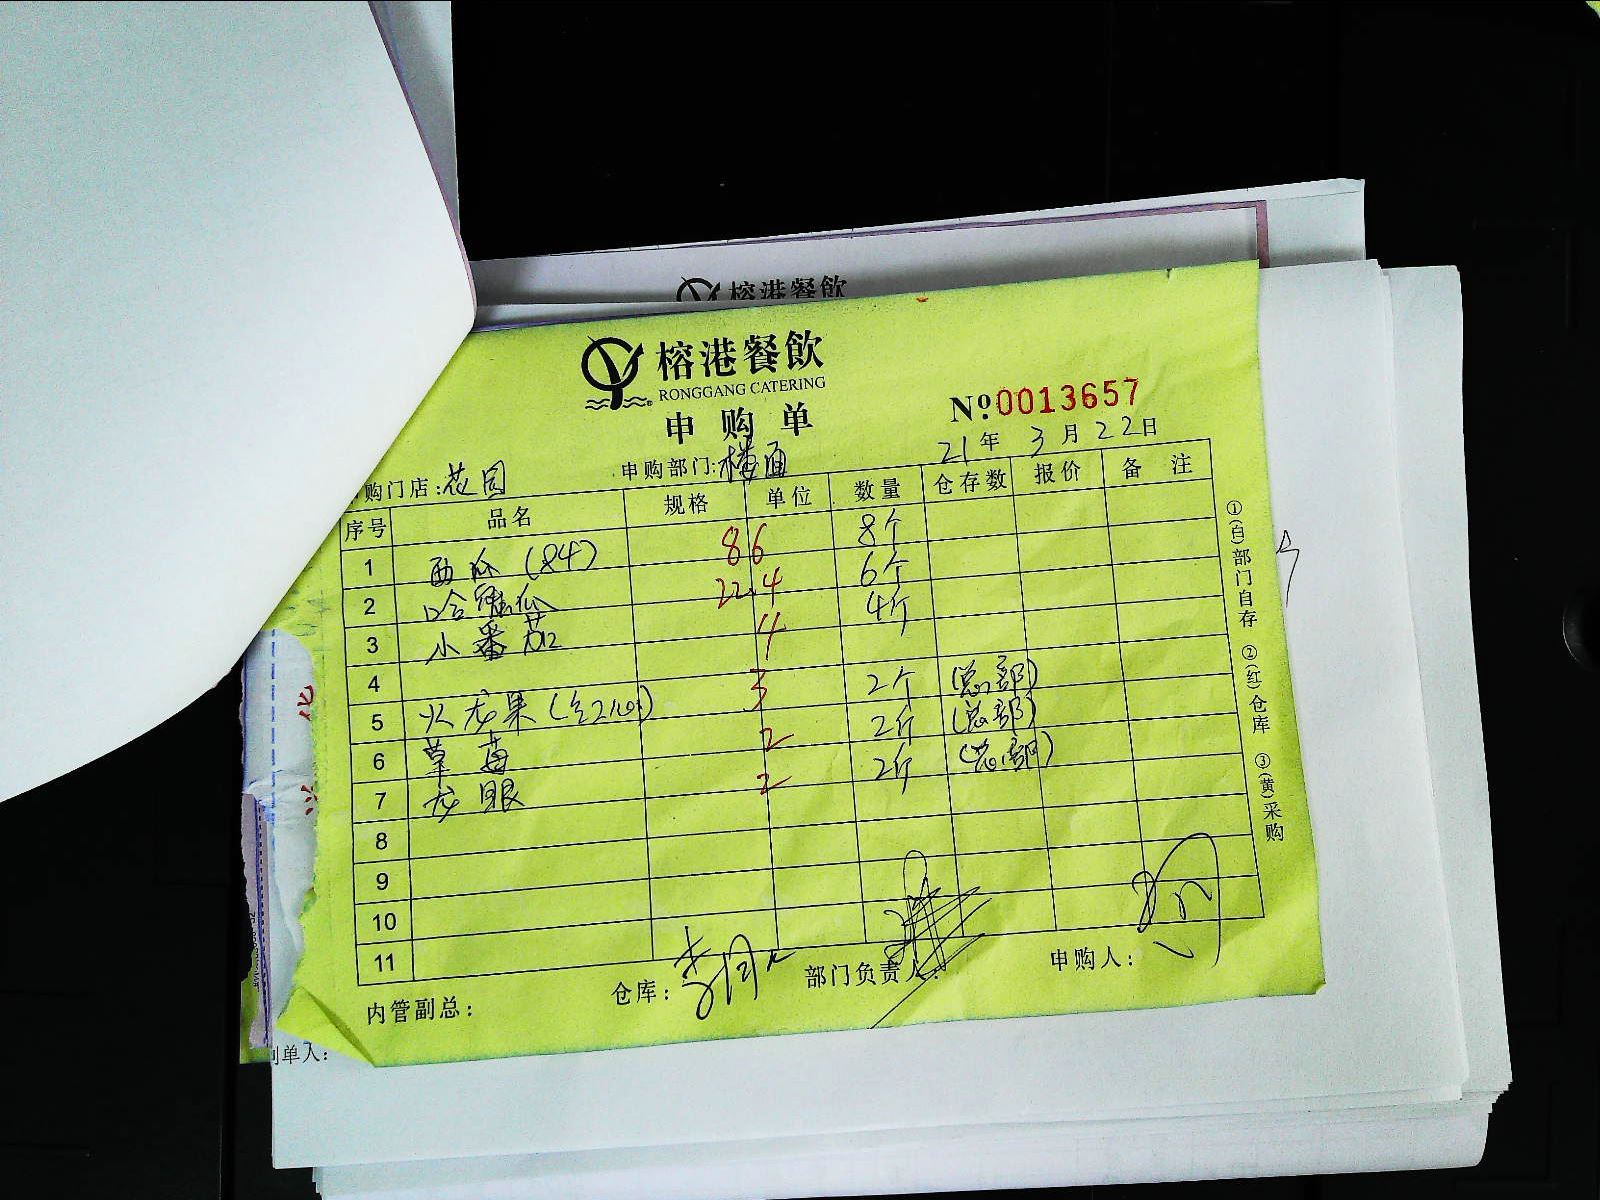 榕港餐飲
榕港餐飲
RONGGANG CATERING
申购单
№ 0013657
21年3月22日
购门店:花园 申购部门:楼面
序号 品名 规格 单位 数量 仓存数 报价 备注
1 西瓜(84) 86 8个
2 哈蜜瓜 22.4 6个
3 小番茄 4 4斤
4
5 火龙果 3 2个 (总部)
6 草莓 2 2斤 (总部)
7 龙眼 2 2斤 (总部)
8
9
10
11
内管副总: 仓库: 部门负责人: 申购人:
①(白)部门自存 ②(红)仓库 ③(黄)采购
单人: